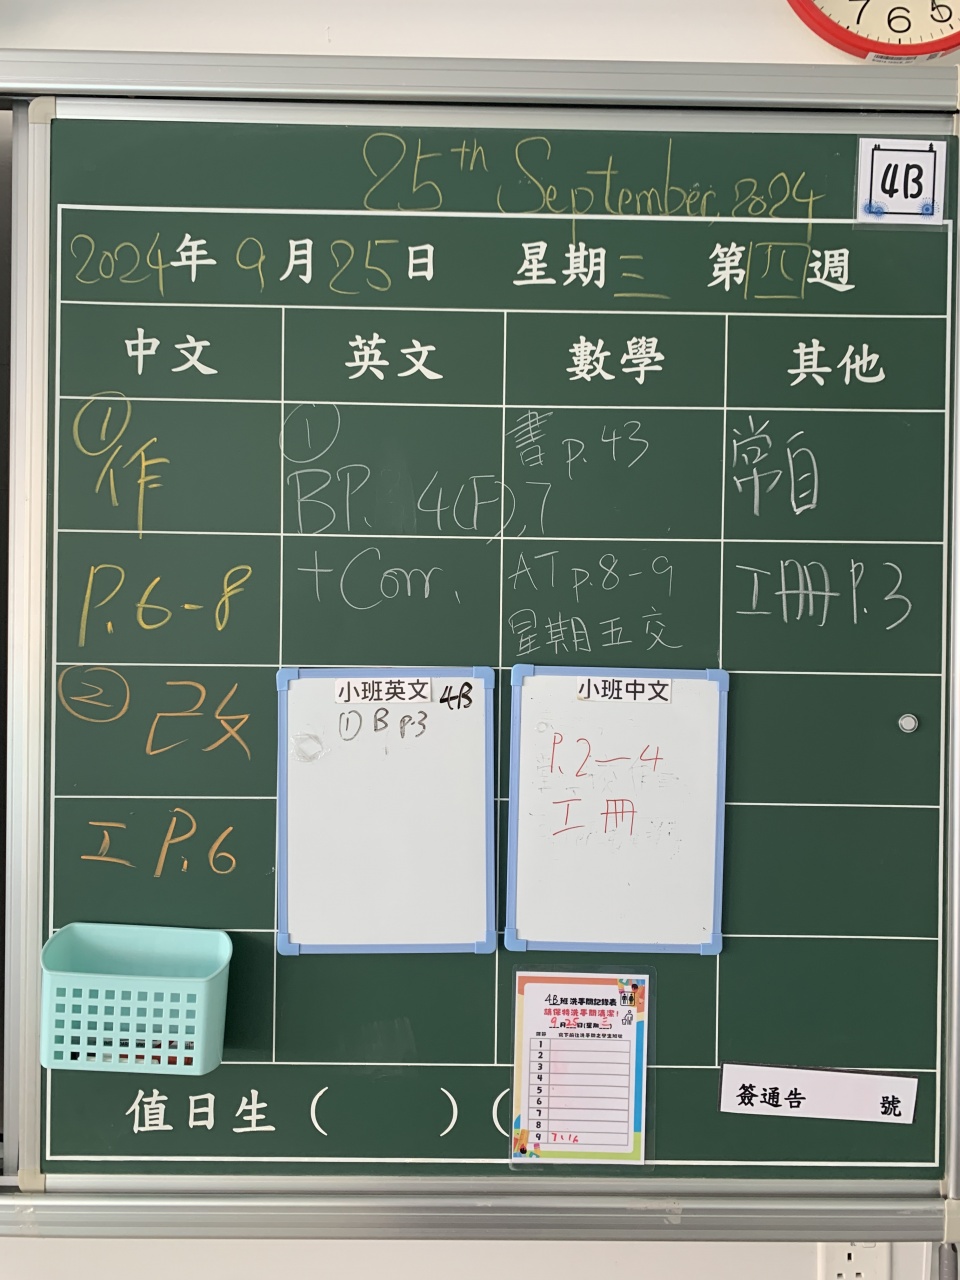 7 6 5
25th September, 2024
4B
2024年9月25日 星期三 第四週
中文 英文 數學 其他
① 作
P.6-8
② 改
工 P.6
①
BP. 4(F),7
+Corr.
書 p.43
AT p.8-9
星期五交
常自
工冊 P.3
小班英文 4B
① B p.3
小班中文
P.2—4
工冊
4B班洗手間記錄表
請保持洗手間清潔!
9月25日(星期三)
1
2
3
4
5
6
7
8
9
值日生( )(
簽通告 號